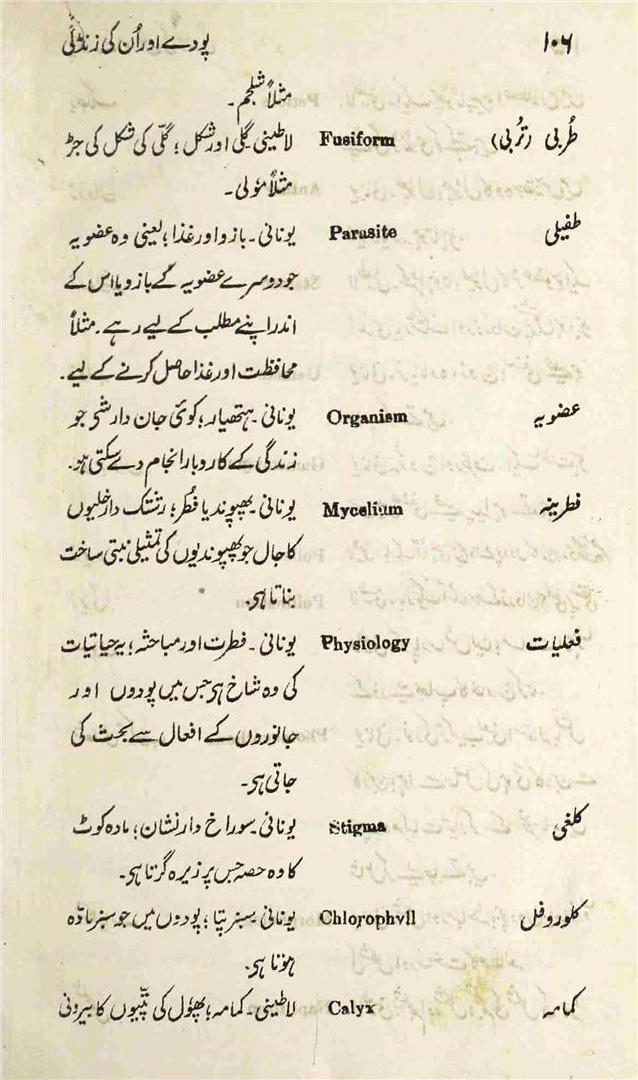 ۱۰۶ پودے اور اُن کی زندگی
مثلاً شلجم۔
طُربی (تُربی) Fusiform لاطینی گلی اور شکل؛ گلّی کی شکل کی جڑ
مثلاً مولی۔
طفیلی Parasite یونانی۔ بازو اور غذا؛ یعنی وہ عضویہ
جو دوسرے عضویہ کے بازو یا اس کے
اندر اپنے مطلب کے لیے رہے۔ مثلاً
محافظت اور غذا حاصل کرنے کے لیے۔
عضویہ Organism یونانی۔ ہتھیار؛ کوئی جان دار شی جو
زندگی کے کاروبار انجام دے سکتی ہو۔
فطرینہ Mycelium یونانی۔ پھپوند یا فُطر؛ رشتک دار خلیوں
کا جال جو پھپوندیوں کی تمثیلی نبتی ساخت
بناتا ہی۔
فعلیات Physiology یونانی۔ فطرت اور مباحثہ؛ یہ حیاتیات
کی وہ شاخ ہی جس میں پودوں اور
جانوروں کے افعال سے بحث کی
جاتی ہی۔
کلغی Stigma یونانی۔ سوراخ دار نشان؛ مادہ کوٹ
کا وہ حصہ جس پر زیرہ گرتا ہی۔
کلوروفل Chlorophyll یونانی۔ سبز پتا؛ پودوں میں جو سبز مادّہ
ہوتا ہی۔
کمامہ Calyx لاطینی۔ کمامہ؛ پھول کی پتّیوں کا بیرونی